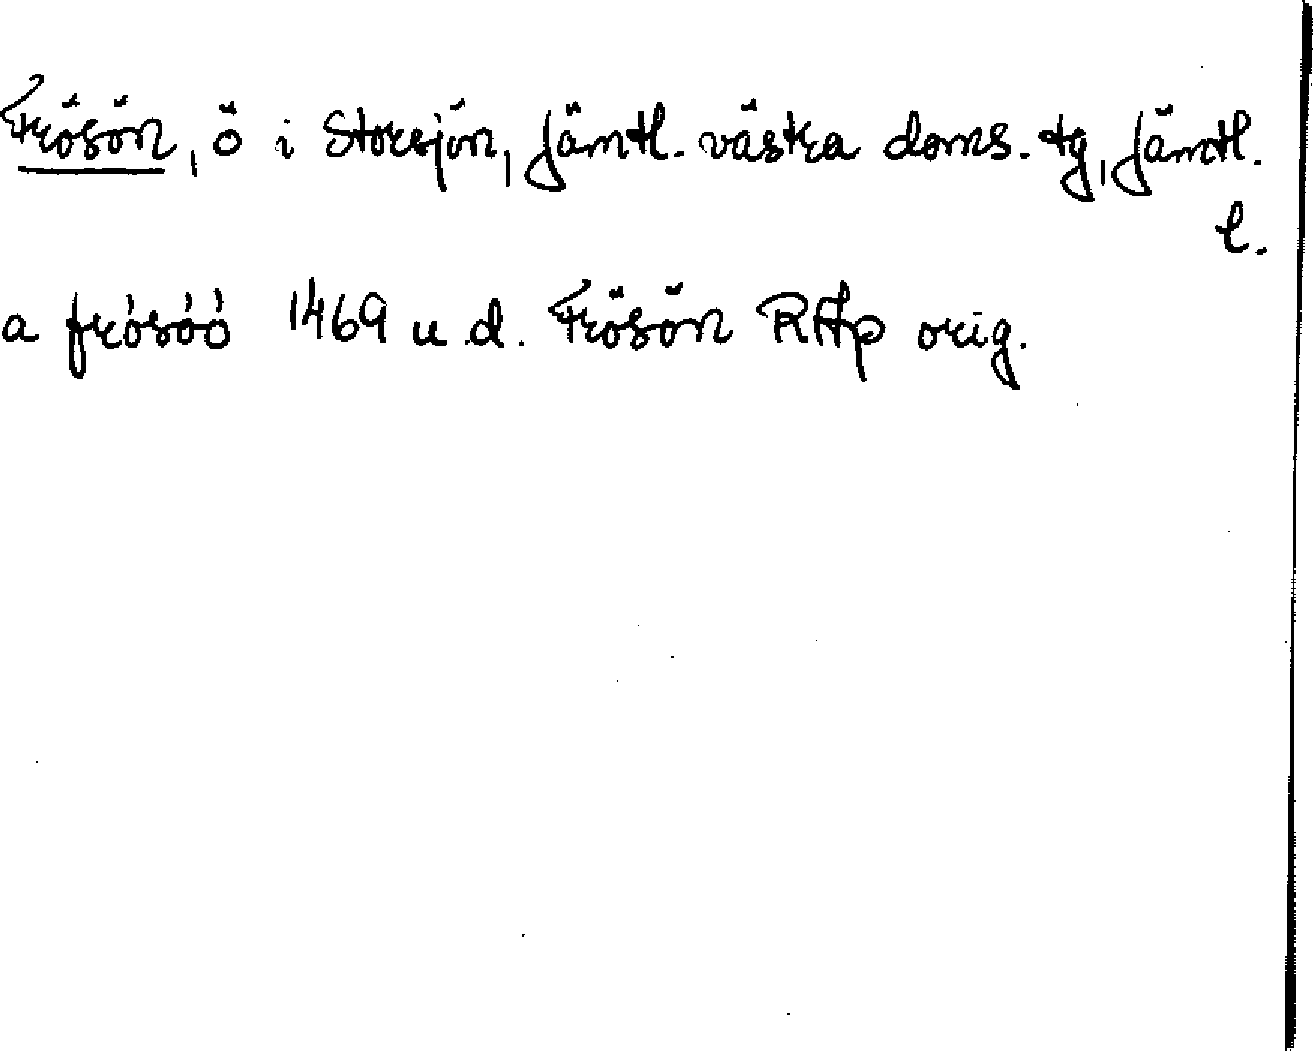 Frösön, ö i Storsjön, Jämtl. västra doms. tg, Jämtl.
l.
a frósóó 1469 u.d. Frösön RAp orig.